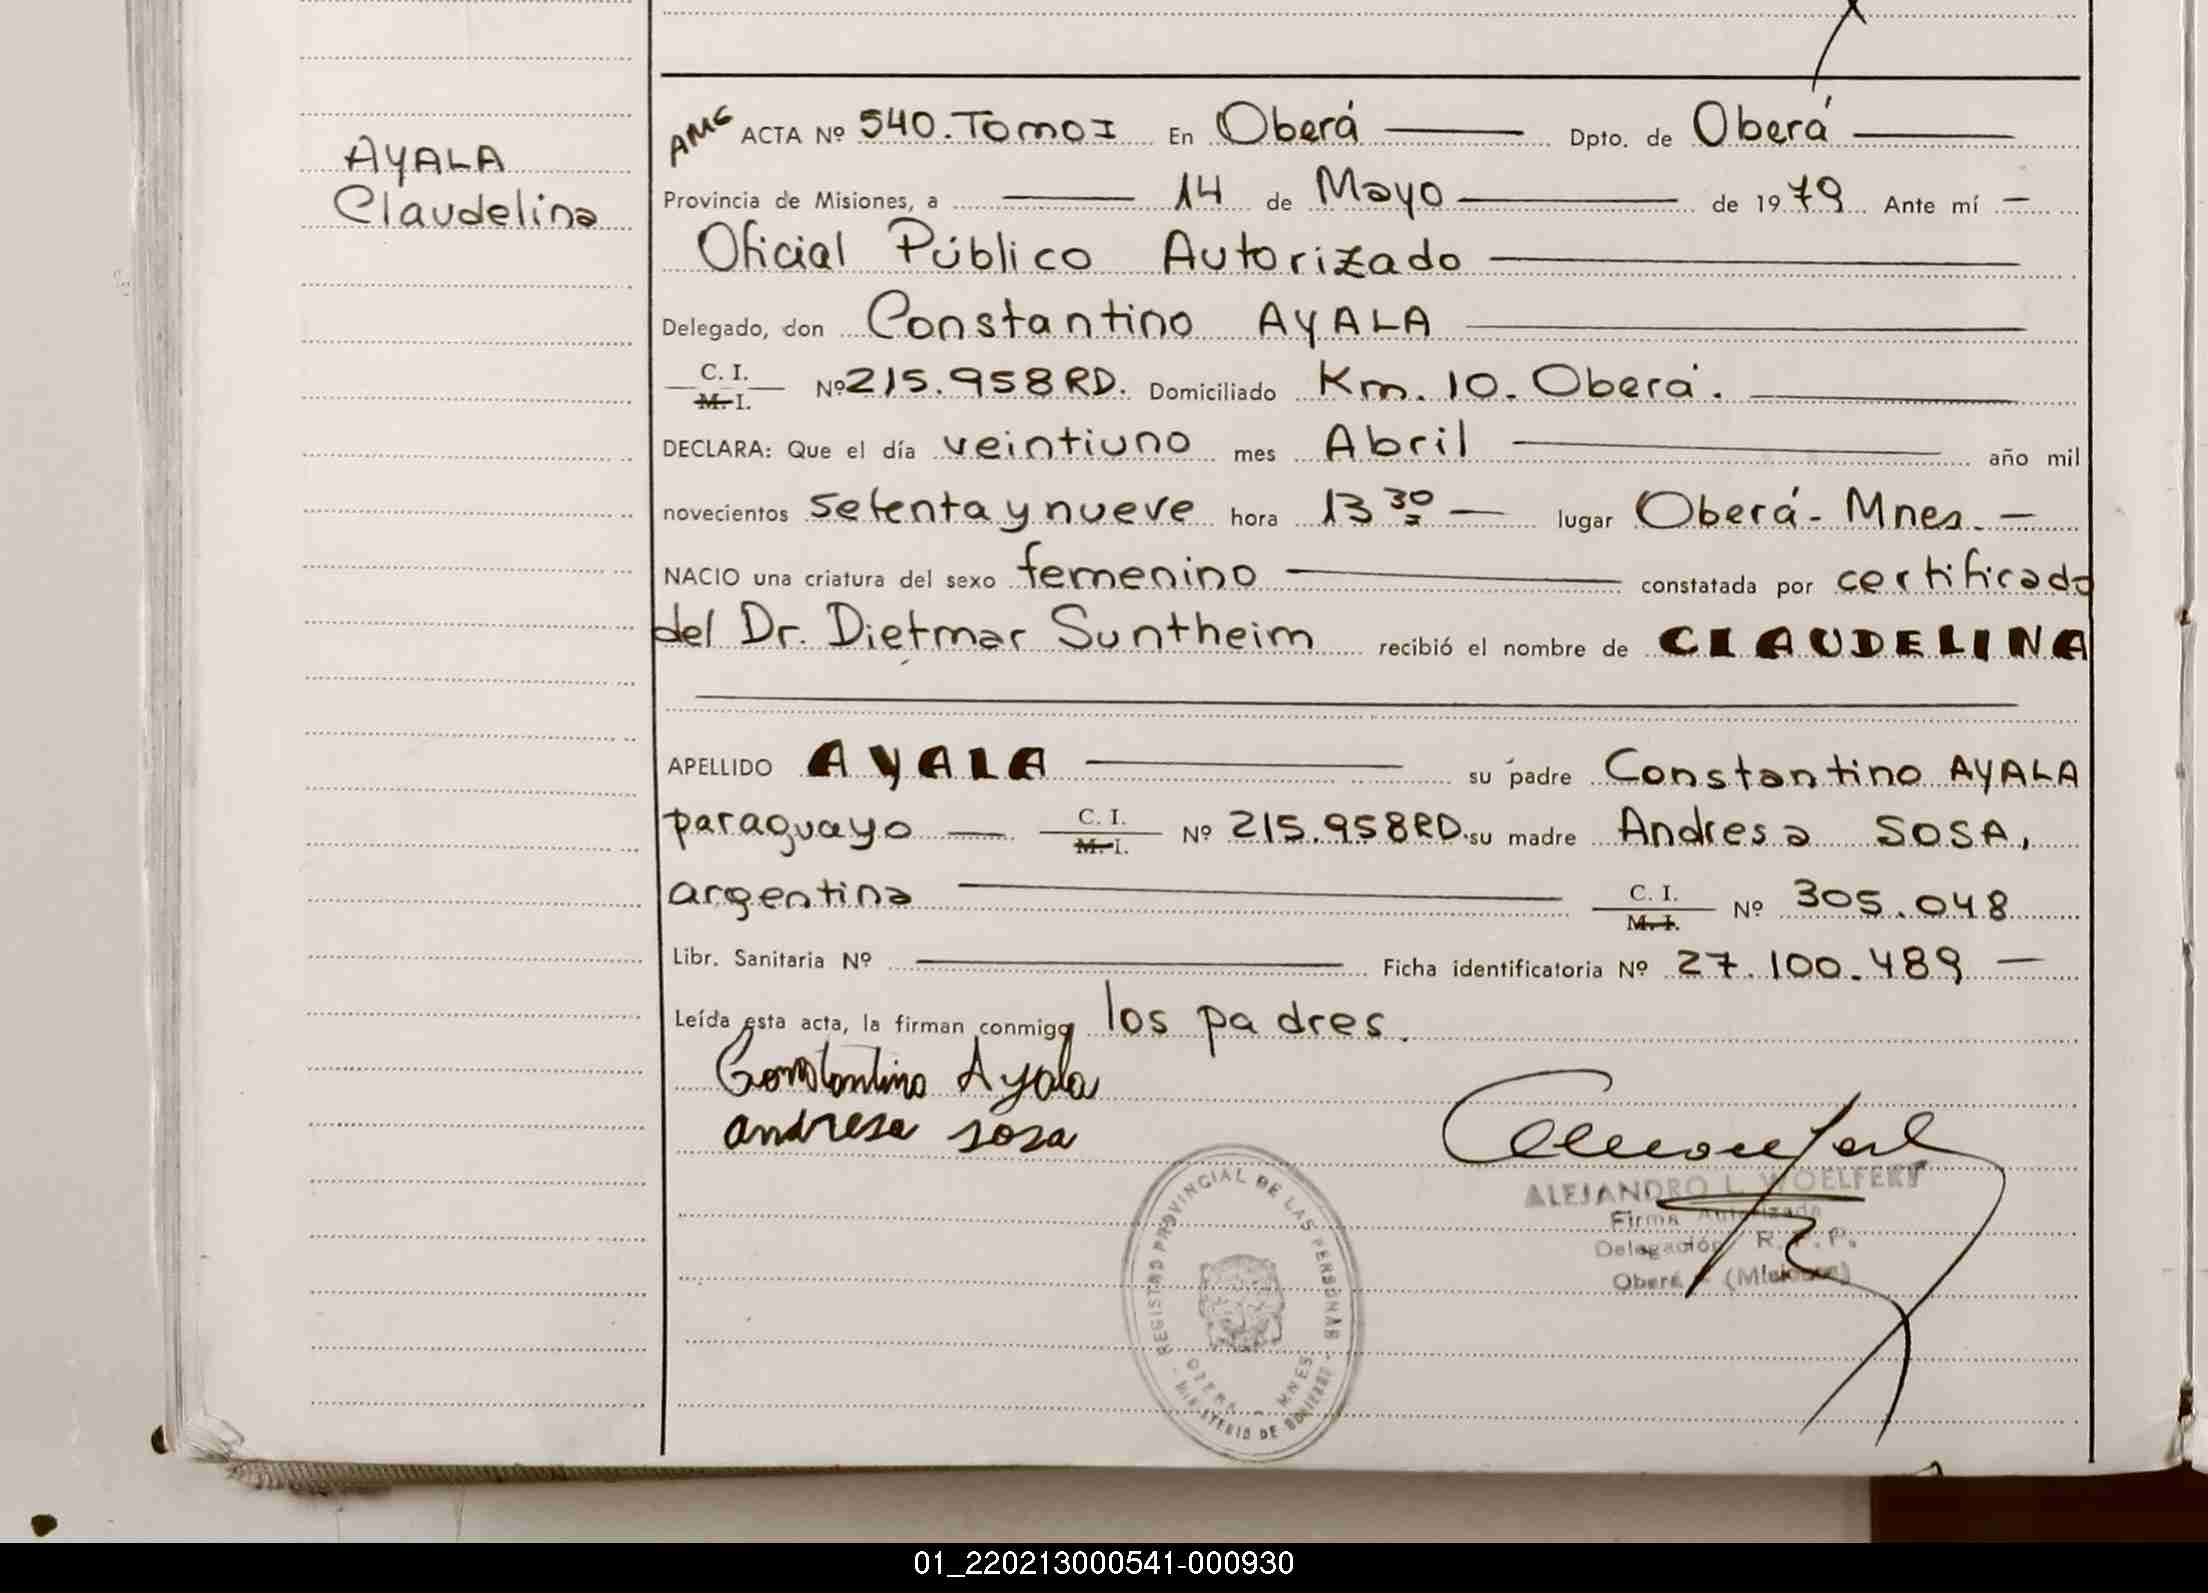 AYALA
Claudelina
AMG ACTA Nº 540. Tomo I En Oberá Dpto. de Oberá
Provincia de Misiones, a 14 de Mayo de 1979 Ante mí
Oficial Público Autorizado
Delegado, don Constantino AYALA
C. I.
M. I. Nº 215.958 RD. Domiciliado Km. 10. Oberá.
DECLARA: Que el día veintiuno mes Abril año mil
novecientos setenta y nueve hora 13 30 lugar Oberá - Mnes.
NACIO una criatura del sexo femenino constatada por certificado
del Dr. Dietmar Suntheim recibió el nombre de CLAUDELINA
APELLIDO AYALA su padre Constantino AYALA
paraguayo C. I. M. I. Nº 215.958 RD. su madre Andresa SOSA,
argentina C. I. M. I. Nº 305.048
Libr. Sanitaria Nº Ficha identificatoria Nº 27.100.489
Leída esta acta, la firman conmigo los padres.
Constantino Ayala
andresa sosa
ALEJANDRO L. WOELFERT
Firma Autorizada
Delegación R. P. P.
Oberá - (Misiones)
REGISTRO PROVINCIAL DE LAS PERSONAS
OBERA - MNES
MINISTERIO DE GOBIERNO
01_220213000541-000930